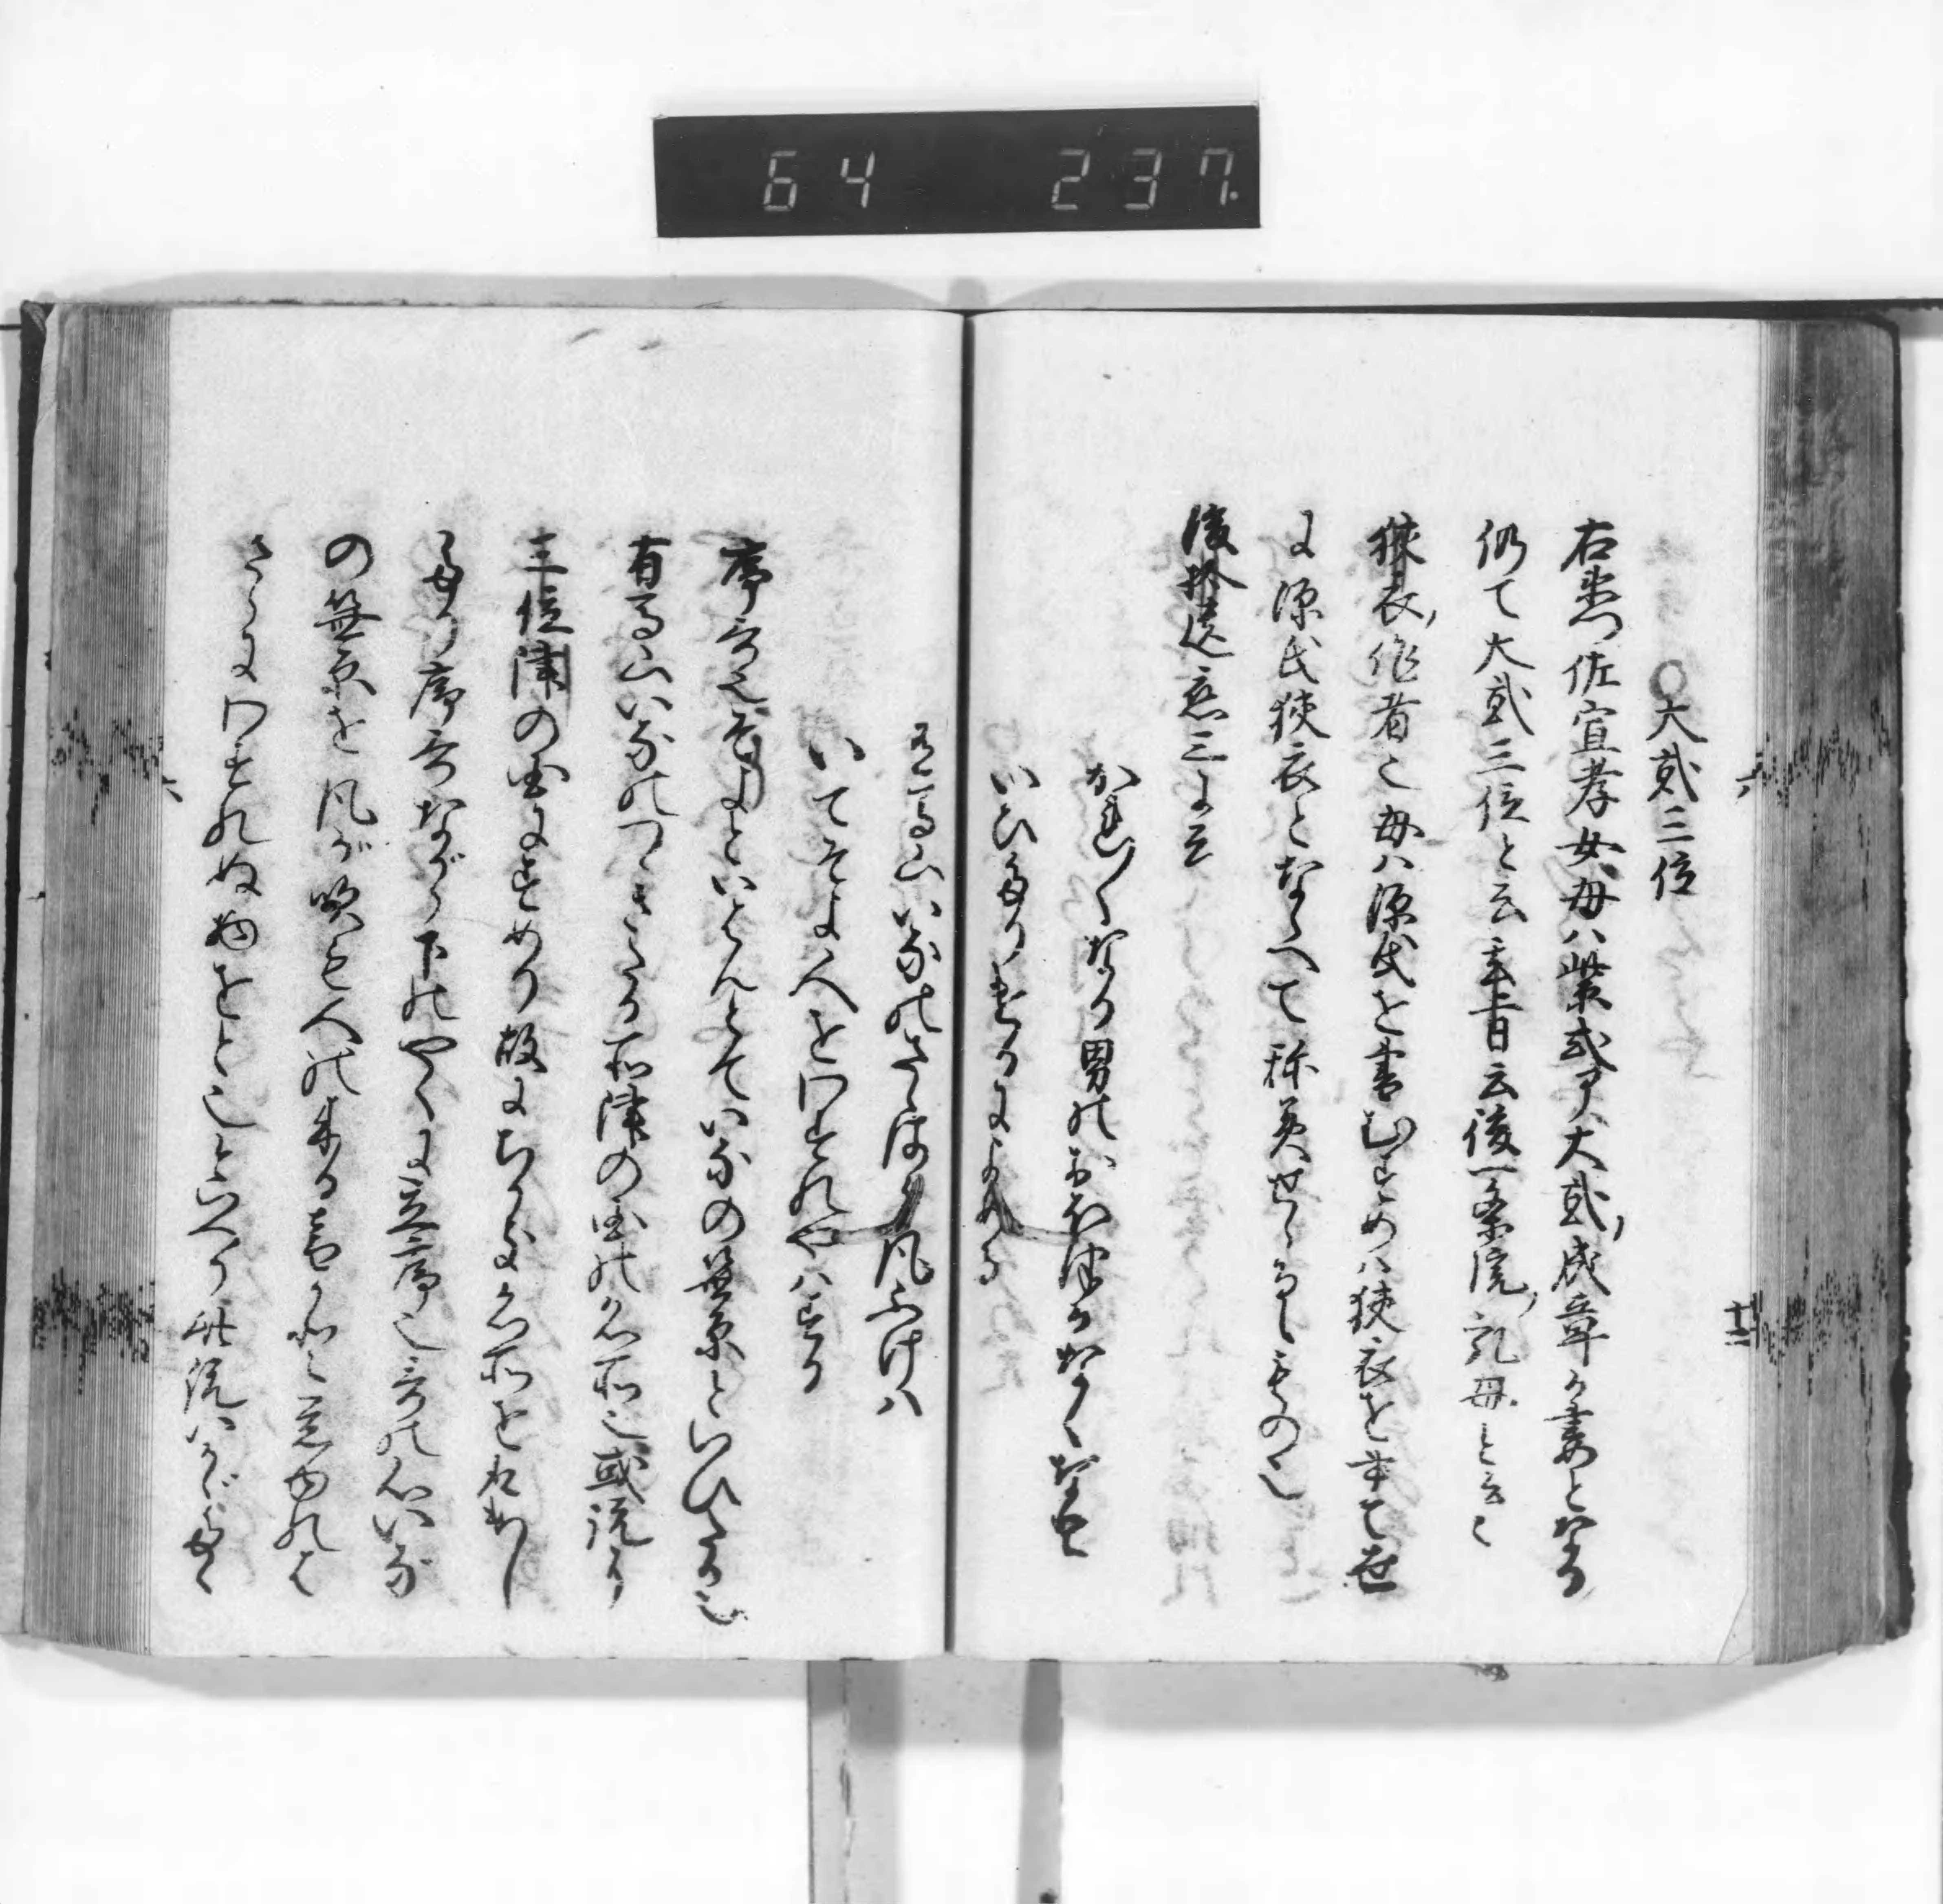 64 237.
○大貳三位
右衛門佐宣孝女母ハ紫式ア大貳成章か妻となる
仍て大貳三位と云 云後一条院乳母と云々
狭衣作者也母ハ源氏を書むすめハ狭衣を書て世
に源氏狭衣とならへて称美せらるゝもの也
後拾遺恋三に云
かれ〳〵なる男のおほつかなくなと
いひたりけるによめる
有馬山いなのさゝ原風ふけは
いてそよ人をわすれやはする
序哥也そよといはんとていなの篠原といひたる也
有馬山いなのつゝきたる所津の国の名所也或説に
三位津の国にすめり故にちかき名所を
たり序哥なから下のやくに立序也哥の心いな
の篠原を風が吹は人の来る
さらにわすれぬ物をと也といへり此説いかゞ